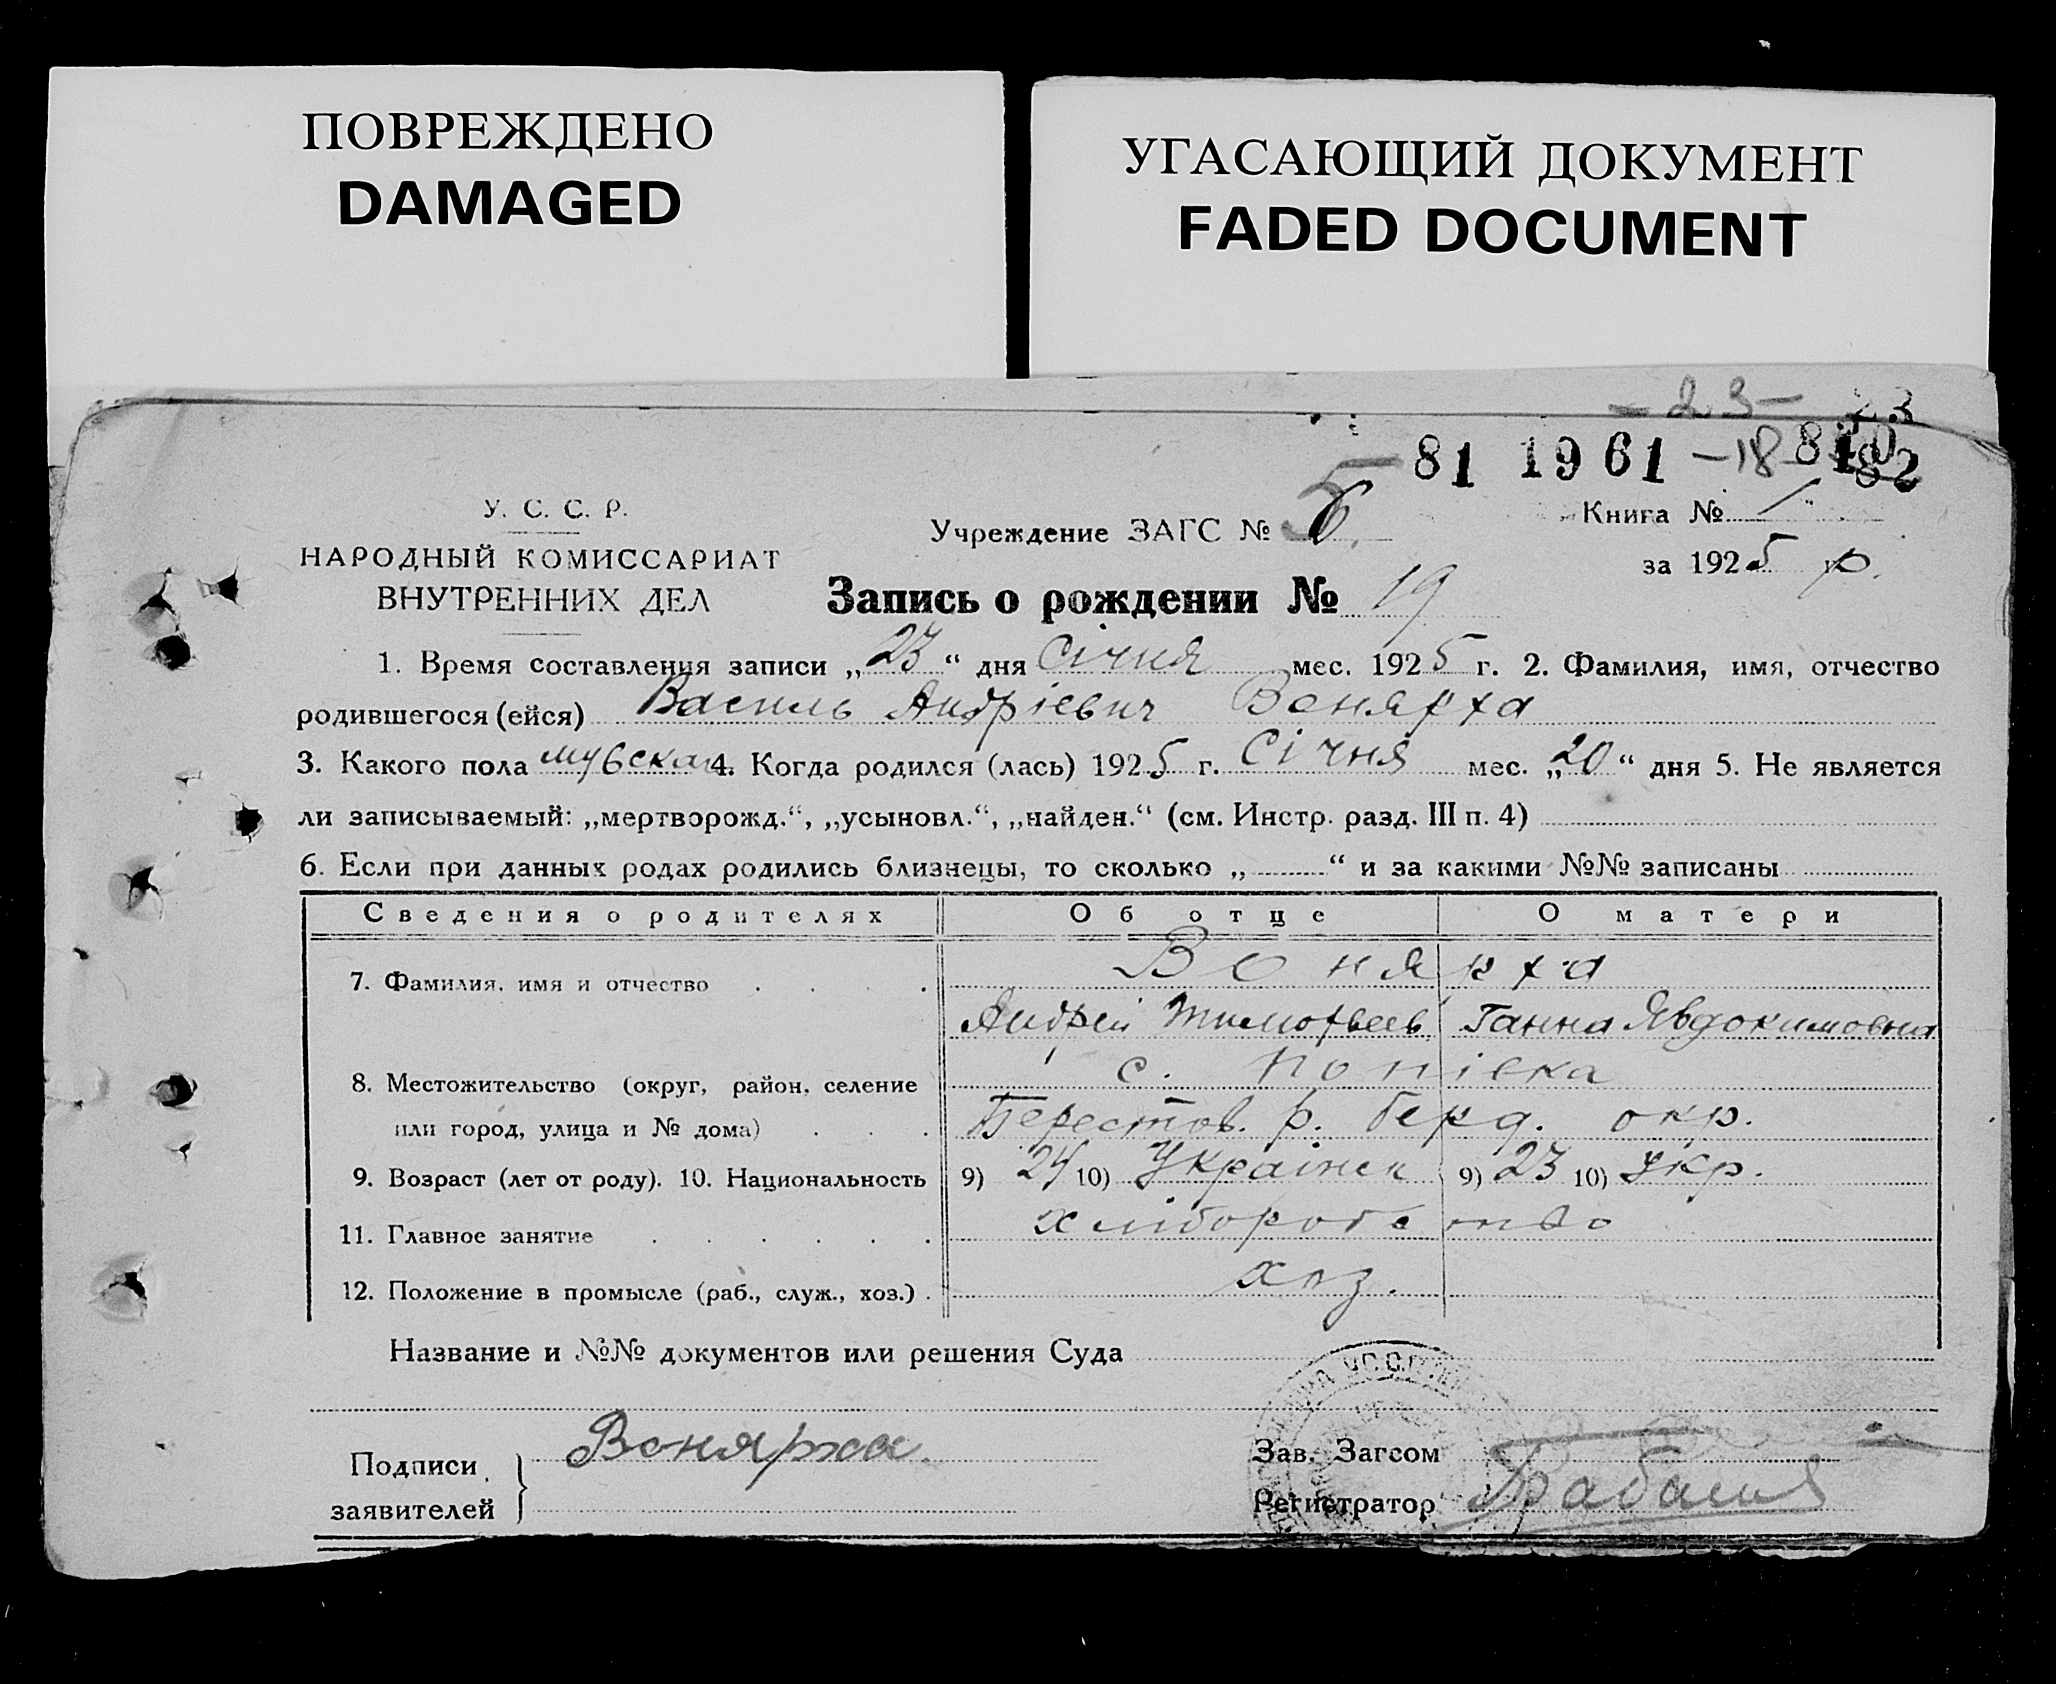 ПОВРЕЖДЕНО
DAMAGED
УГАСАЮЩИЙ ДОКУМЕНТ
FADED DOCUMENT
- 23 - 23
81 1961 - 18
У. С. С. Р.
НАРОДНЫЙ КОМИССАРИАТ
ВНУТРЕННИХ ДЕЛ
Учреждение ЗАГС № 6
Книга № 1
за 1925 р.
Запись о рождении № 19
1. Время составления записи „23“ дня Січня мес. 1925 г. 2. Фамилия, имя, отчество
родившегося (ейся) Василь Андріевич Вонярха
3. Какого пола 4. Когда родился (лась) 1925 г. Січня мес. „20“ дня 5. Не является
ли записываемый: „мертворожд.“, „усыновл.“, „найден.“ (см. Инстр. разд. III п. 4)
6. Если при данных родах родились близнецы, то сколько „ “ и за какими №№ записаны
Сведения о родителях Об отце О матери
7. Фамилия, имя и отчество Вонярха
Андрей Тимофеев Ганна Явдокимовна
8. Местожительство (округ, район, селение с. Попівка
или город, улица и № дома) Берестов. р. берд. окр.
9. Возраст (лет от роду). 10. Национальность 9) 24 10) Українец 9) 23 10) Укр.
11. Главное занятие хліборобство
12. Положение в промысле (раб., служ., хоз.) хоз.
Название и №№ документов или решения Суда
Подписи
заявителей
Вонярха
Зав. Загсом
Регистратор